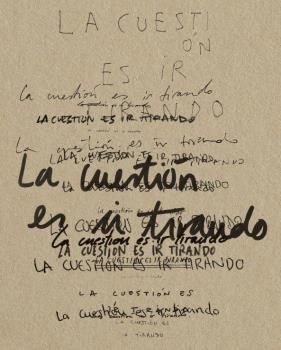 LA CUESTI
ÓN
ES IR
La cuestión es ir tirando
TIRANDO
LA CUESTIÓN ES IR TIRANDO
La cuestión es ir tirando
LA CUESTIÓN ES IR TIRANDO
La cuestión
es ir tirando
La cuestión es ir tirando
LA CUESTIÓN ES IR TIRANDO
LA CUESTIÓN ES IR TIRANDO
LA CUESTIÓN ES
La cuestión es ir tirando
LA CUESTIÓN ES
IR TIRANDO